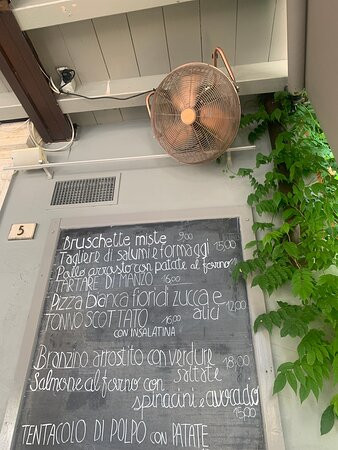 5
Bruschette miste 9,00
Tagliere di salumi e formaggi 15,00
Pollo arrosto con patate al forno
TARTARE DI MANZO 16,00
Pizza bianca fiori di zucca e alici 12,00
TONNO SCOTTATO 16,00
CON INSALATINA
Branzino arrostito con verdure saltate 18,00
Salmone al forno con
spinacini e avocado
15,00
TENTACOLO DI POLPO CON PATATE